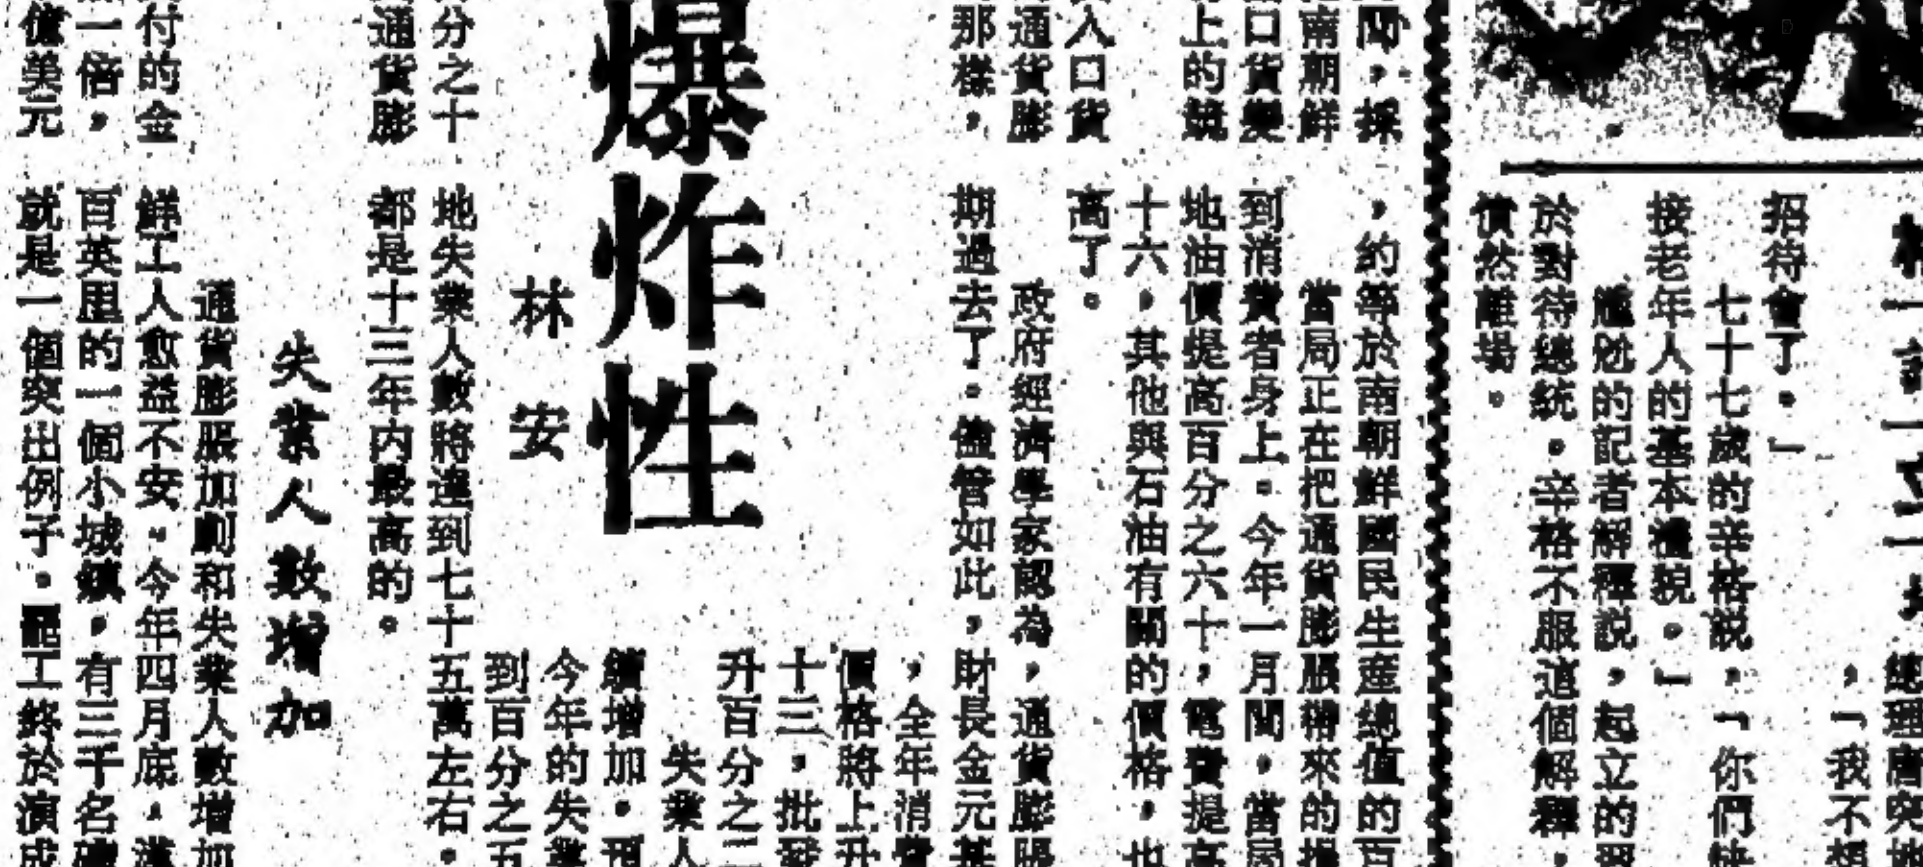 招待會了。」
七十七歲的辛格說，「你們
接老年人的基本禮貌。」
尷尬的記者解釋說，起立的
於對待總統。辛格不服這個解釋，
憤然離場。
，「我不
總理
聞，採
南朝鮮
口貨變
上的競
入口貨
通貨膨
那樣，
，約等於南朝鮮國民生產總值的百
當局正在把通貨膨脹帶來的
到消費者身上。今年一月間，當局
地油價提高百分之六十，電費提高
十六，其他與石油有關的價格，也
高了。
政府經濟學家認為，通貨膨脹
期過去了。儘管如此，財長金元基
，全年消費
價格將上升
十三，批發
升百分之二
失業人
續增加。預
今年的失業
到百分之五
爆炸性
林安
分之十
通貨膨
地失業人數將達到七十五萬左右。
都是十三年內最高的。
失業人數增加
付的金
一倍，
億美元
通貨膨脹加劇和失業人數增加
鮮工人愈益不安。今年四月底，漢
百英里的一個小城鎮，有三千名礦
就是一個突出例子。罷工終於演成